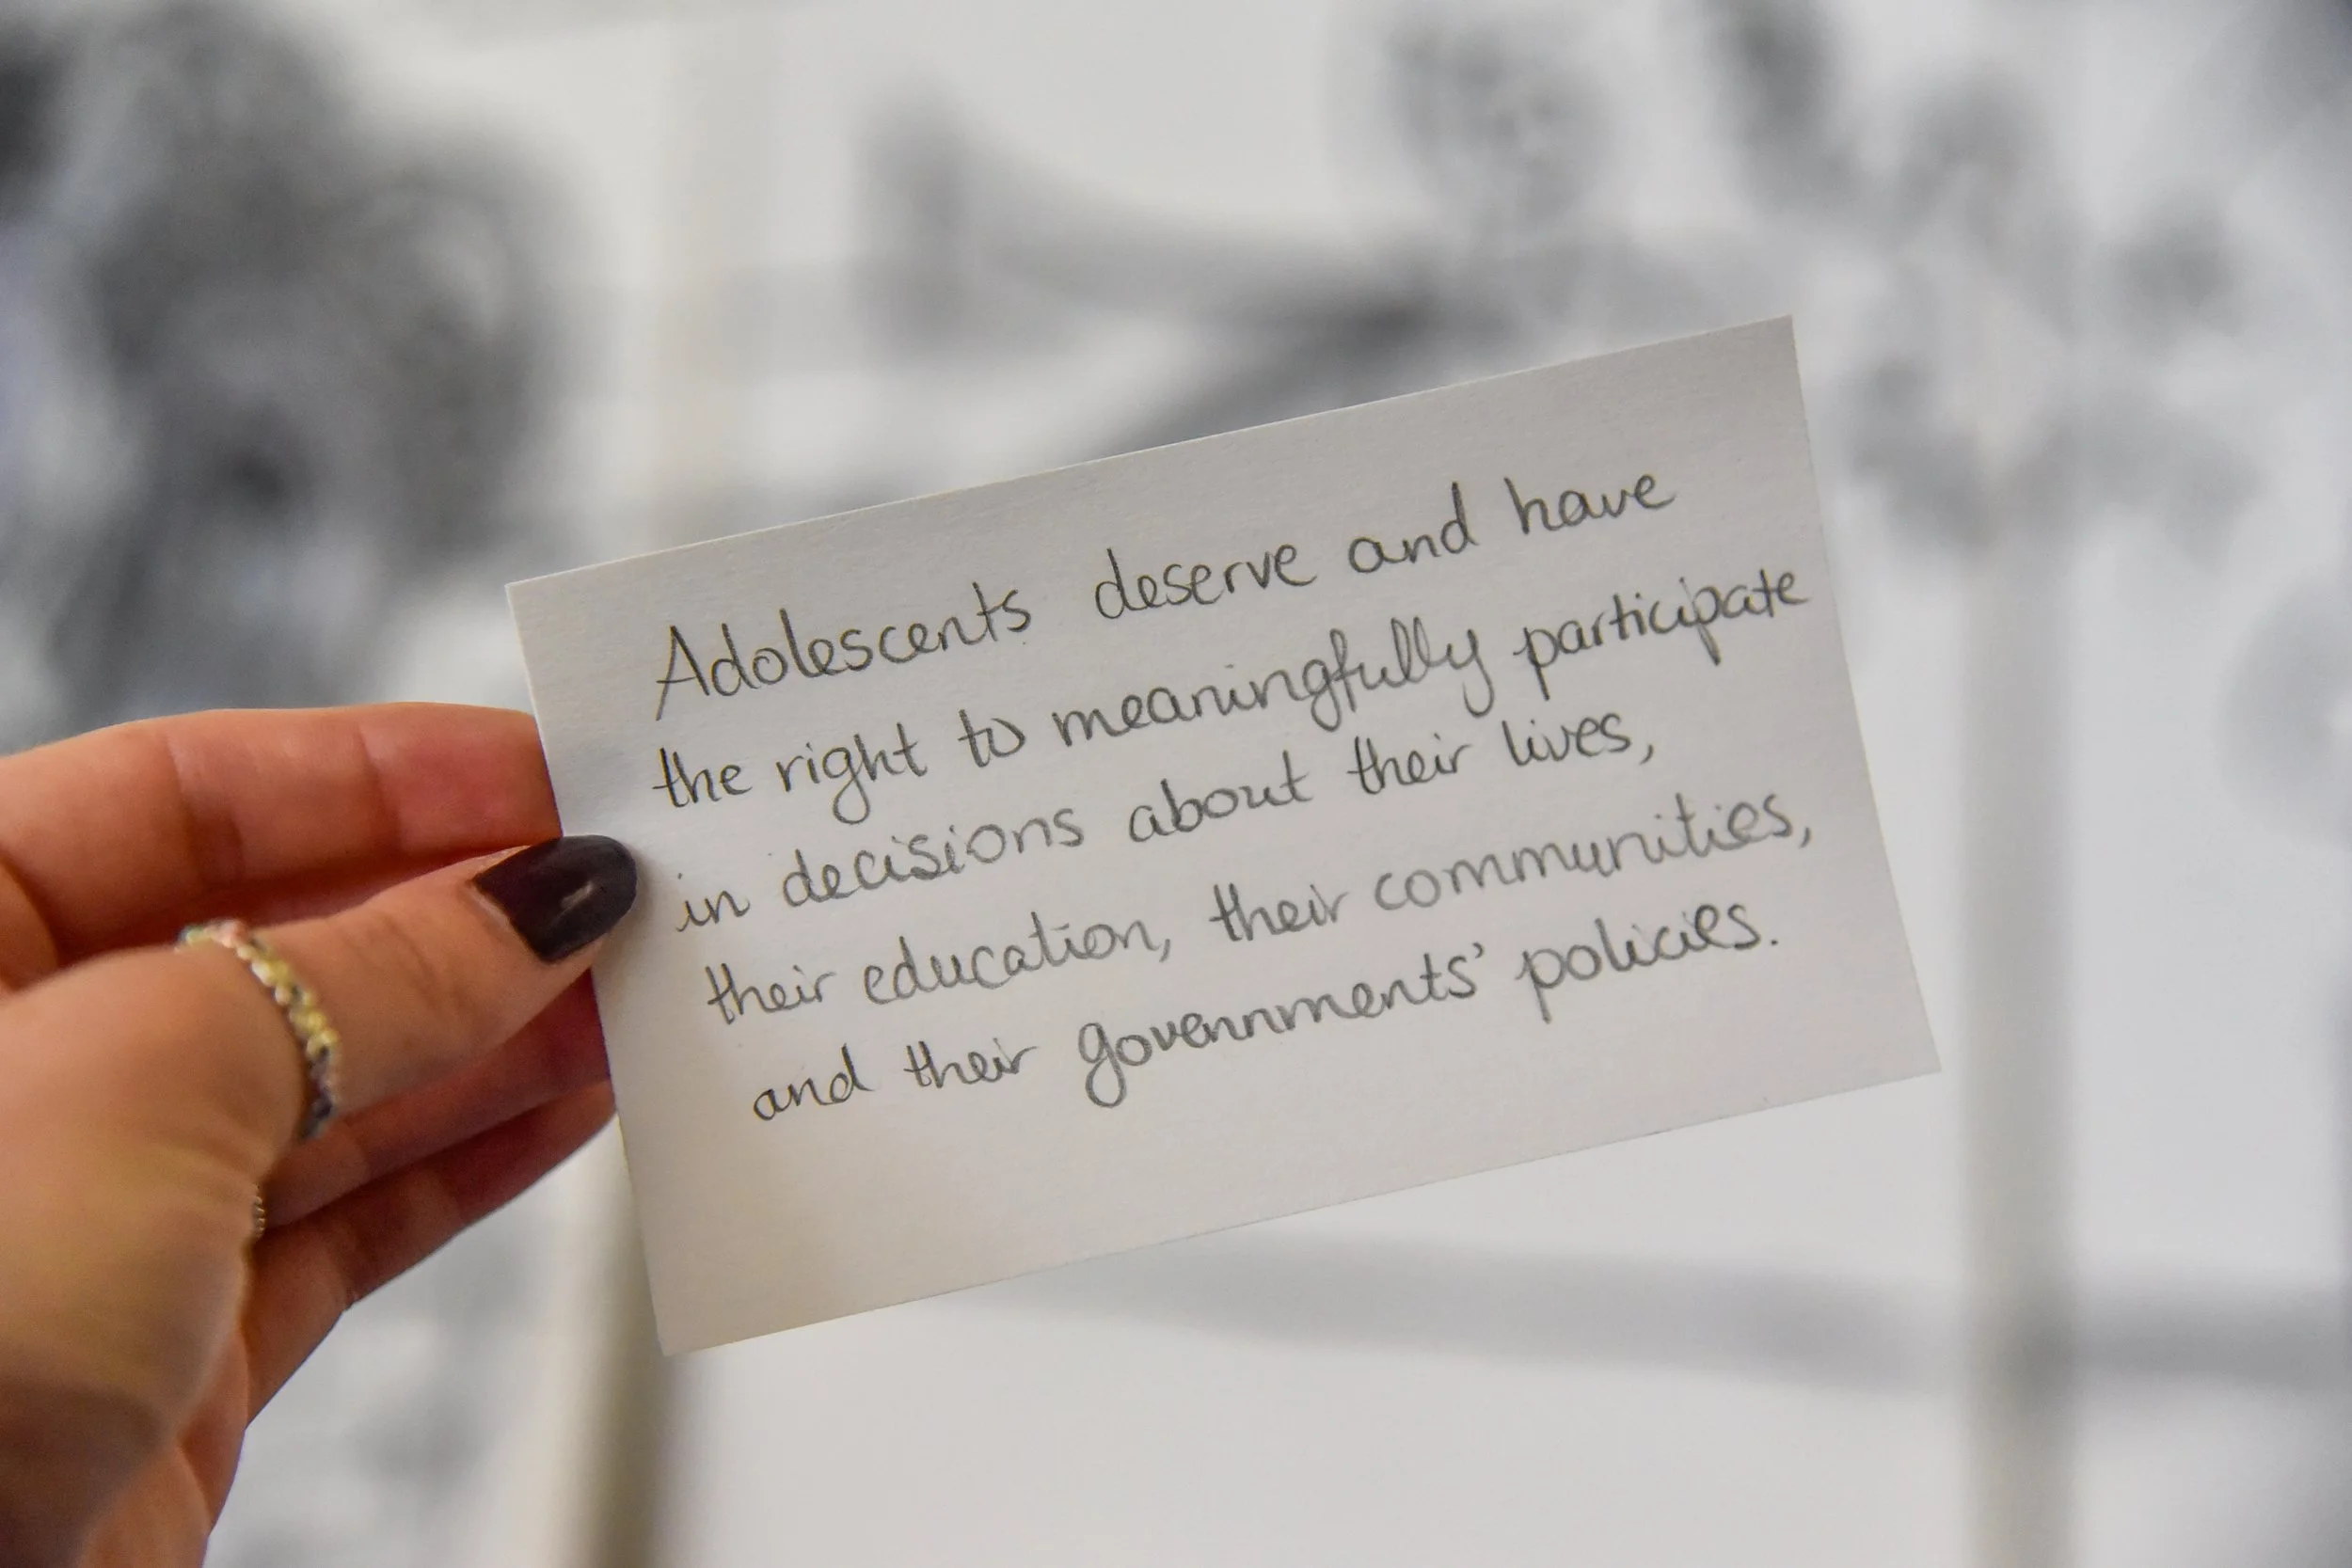 Adolescents deserve and have
the right to meaningfully participate
in decisions about their lives,
their education, their communities,
and their governments' policies.